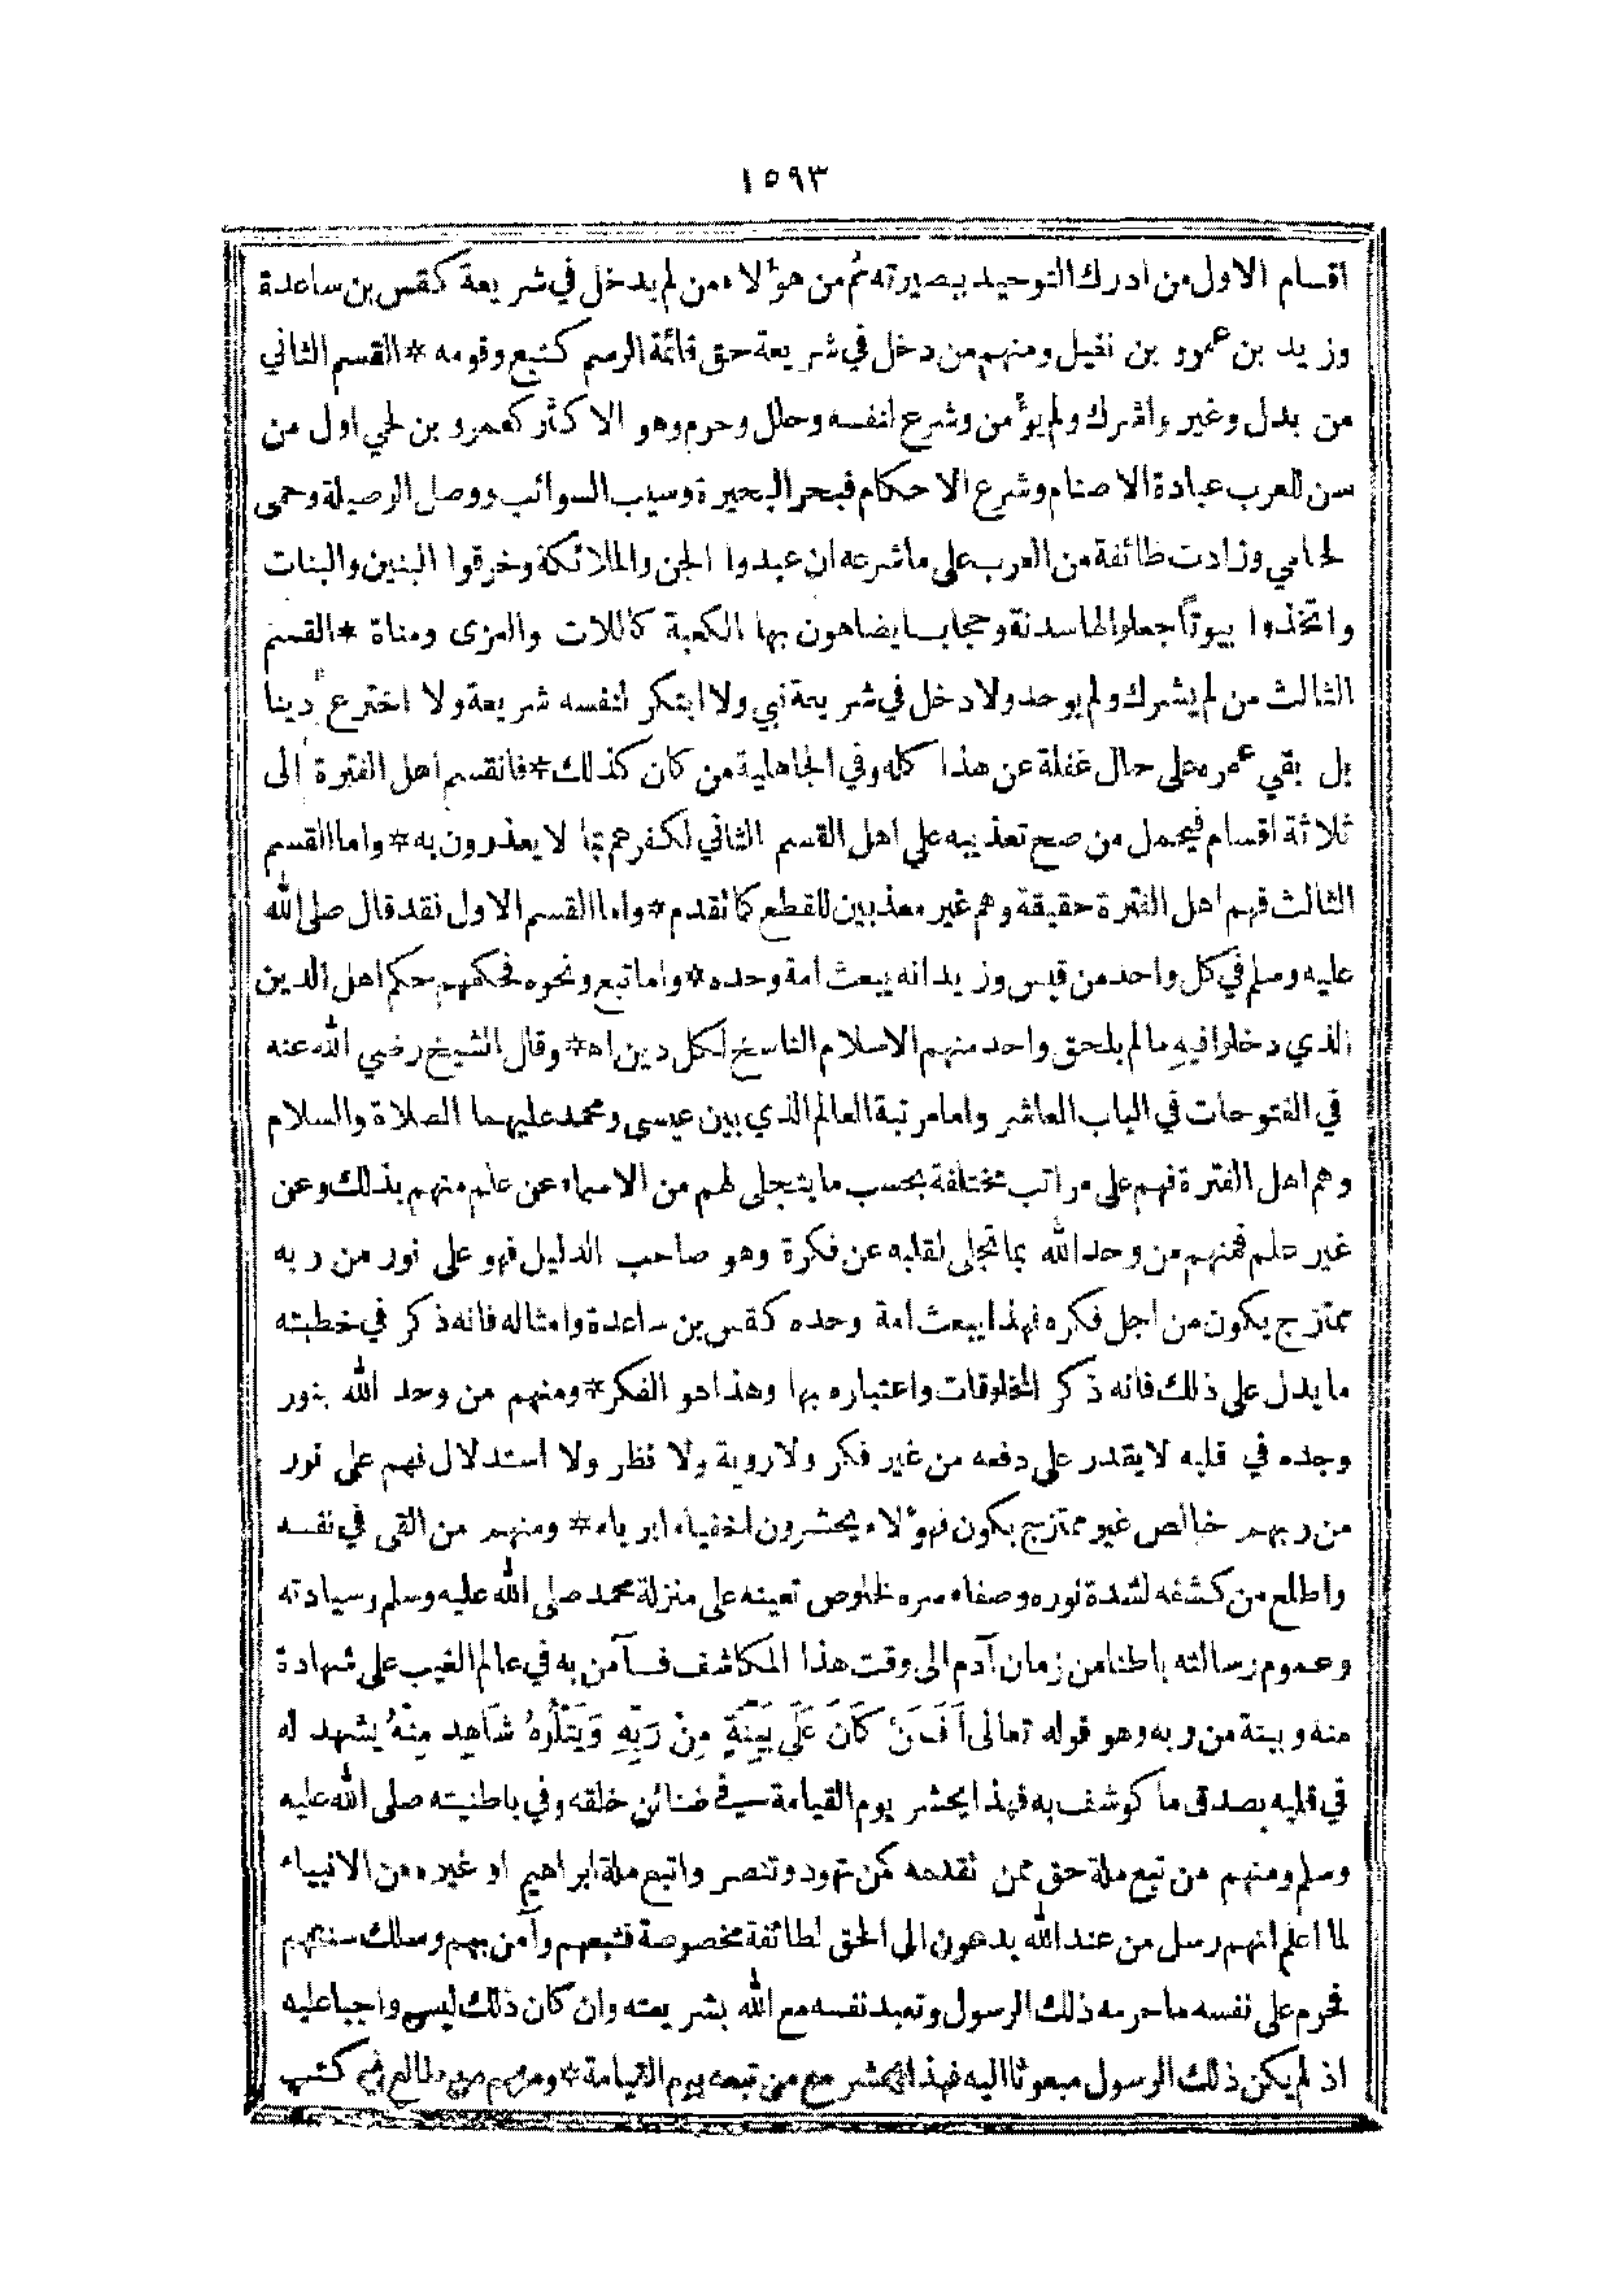 ١٥٩٣
اقسام الاول من ادرك التوحيد ببصيرته ثم من هؤلاء من لم يدخل في شريعة كقس بن ساعدة
وزيد بن عمرو بن نفيل ومنهم من دخل في شريعة حق قائمة الرسم كتبع وقومه * القسم الثاني
من بدل وغير واشرك ولم يؤمن وشرع لنفسه وحلل وحرم وهو الاكثر كعمرو بن لحي اول من
سن للعرب عبادة الاصنام وشرع الاحكام فبحر البحيرة وسيب السوائب ووصل الوصيلة وحمى
لحامي وزادت طائفة من العرب على ماشرعه ان عبدوا الجن والملائكة وخرقوا البنين والبنات
واتخذوا بيوتاً جعلوا لها سدنة وحجابا يضاهون بها الكعبة كاللات والعزى ومناة * القسم
الثالث من لم يشرك ولم يوحد ولا دخل في شريعة نبي ولا ابتكر لنفسه شريعة ولا اخترع دينا
بل بقي عمره على حال غفلة عن هذا كله وفي الجاهلية من كان كذلك * فانقسم اهل الفترة الى
ثلاثة اقسام فيحمل من صح تعذيبه على اهل القسم الثاني لكفرهم بما لا يعذرون به * واما القسم
الثالث فهم اهل الفترة حقيقة وهم غير معذبين للقطع كما تقدم * واما القسم الاول فقد قال صلى الله
عليه وسلم في كل واحد من قس وزيد انه يبعث امة وحده * واما تبع ونحوه فحكمهم حكم اهل الدين
الذي دخلوا فيه ما لم يلحق واحد منهم الاسلام الناسخ لكل دين اه * وقال الشيخ رضي الله عنه
في الفتوحات في الباب العاشر واما مرتبة العالم الذي بين عيسى ومحمد عليهما الصلاة والسلام
وهم اهل الفترة فهم على مراتب مختلفة بحسب ما يتجلى لهم من الاسماء عن علم منهم بذلك وعن
غير علم فمنهم من وحد الله بما تجلى لقلبه عن فكرة وهو صاحب الدليل فهو على نور من ربه
ممتزج بكون من اجل فكره فهذا يبعث امة وحده كقس بن ساعدة وامثاله فانه ذكر في خطبته
ما يدل على ذلك فانه ذكر المخلوقات واعتباره بها وهذا هو الفكر * ومنهم من وحد الله بنور
وجده في قلبه لا يقدر على دفعه من غير فكر ولا روية ولا نظر ولا استدلال فهم على نور
من ربهم خالص غير ممتزج بكون فهؤلاء يحشرون اخفياء ابرياء * ومنهم من القى في نفسه
واطلع من كشفه لشدة نوره وصفاء سره لخلوص تعينه على منزلة محمد صلى الله عليه وسلم وسيادته
وعموم رسالته باطنا من زمان آدم الى وقت هذا المكاشف فآمن به في عالم الغيب على شهادة
منه وبينة من ربه وهو قوله تعالى أَفَمَنْ كَانَ عَلَى بَيِّنَةٍ مِنْ رَبِّهِ وَيَتْلُوهُ شَاهِد مِنْهُ يشهد له
في قلبه بصدق ما كوشف به فهذا يحشر يوم القيامة في ضنائن خلقه وفي باطنيته صلى الله عليه
وسلم ومنهم من تبع ملة حق ممن تقدمه كمن تهود وتنصر واتبع ملة ابراهيم او غيره من الانبياء
لما اعلم انهم رسل من عند الله يدعون الى الحق لطائفة مخصوصة فتبعهم وآمن بهم وسلك سننهم
فحرم على نفسه ما حرمه ذلك الرسول وتعبد نفسه مع الله بشريعته وان كان ذلك ليس واجبا عليه
اذ لم يكن ذلك الرسول مبعوثا اليه فهذا يحشر مع من تبعه يوم القيامة * ومنهم من طالع في كتب